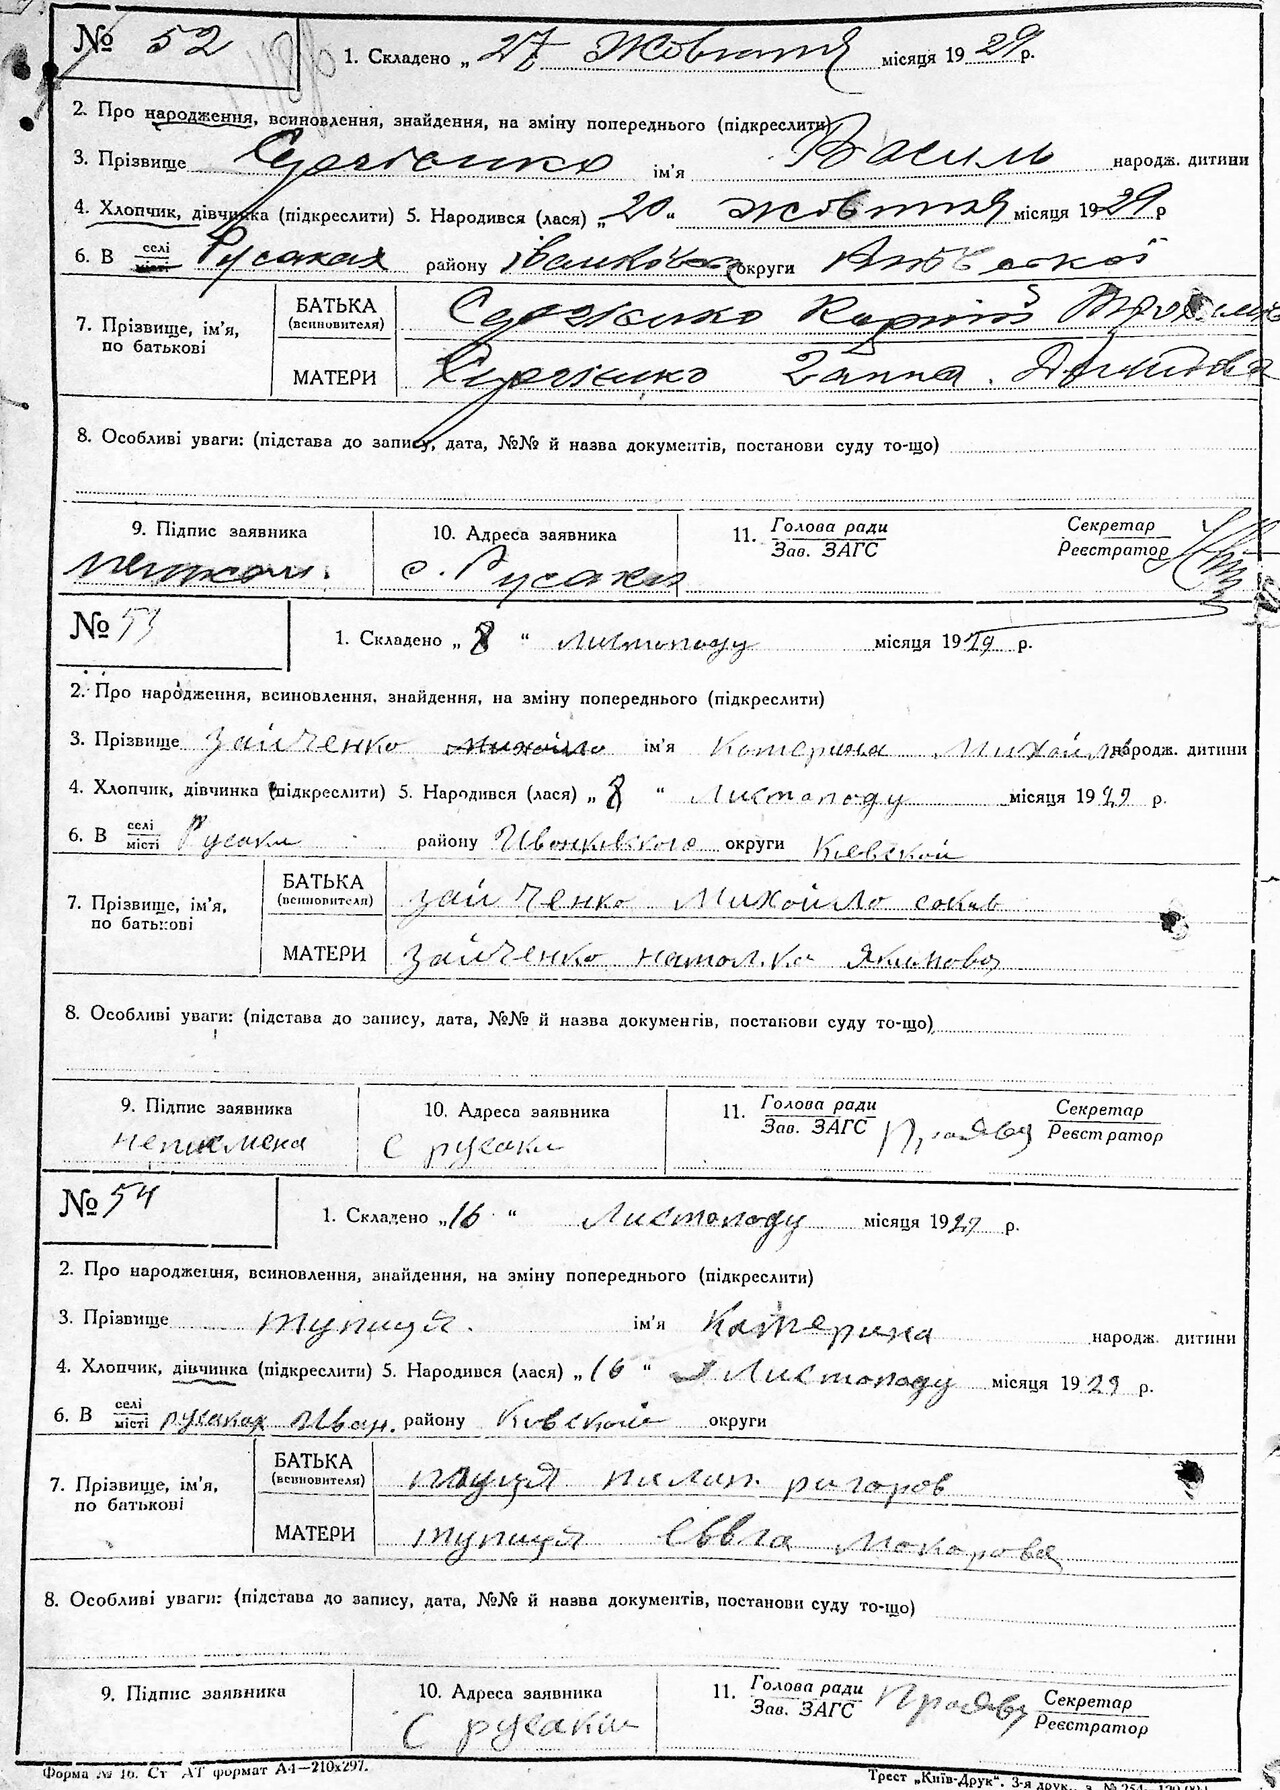 № 52
1. Складено „ 27 Жовтня місяця 1929 р.
2. Про народження, всиновлення, знайдення, на зміну попереднього (підкреслити)
3. Прізвище ім'я Василь народж. дитини
4. Хлопчик, дівчинка (підкреслити) 5. Народився (лася) „ 20 “ жовтня місяця 1929 р
6. В селі місті Русаках району Іванківськ округи
7. Прізвище, ім'я, по батькові
БАТЬКА (всиновителя)
МАТЕРИ Ганна
8. Особливі уваги: (підстава до запису, дата, №№ й назва документів, постанови суду то-що)
9. Підпис заявника
10. Адреса заявника
11. Голова ради Зав. ЗАГС
Секретар Реєстратор
с. Русаки
№ 53
1. Складено „ 8 “ листопаду місяця 1929 р.
2. Про народження, всиновлення, знайдення, на зміну попереднього (підкреслити)
3. Прізвище Зайченко Михайло ім'я Катерина народж. дитини
4. Хлопчик, дівчинка (підкреслити) 5. Народився (лася) „ 8 “ Листопаду місяця 1929 р.
6. В селі місті Русаки району Иванковского округи Киевской
7. Прізвище, ім'я, по батькові
БАТЬКА (всиновителя) Зайченко Михайло
МАТЕРИ Зайченко Якимова
8. Особливі уваги: (підстава до запису, дата, №№ й назва документів, постанови суду то-що)
9. Підпис заявника
10. Адреса заявника
11. Голова ради Зав. ЗАГС
Секретар Реєстратор
неписмена
с русаки
№ 54
1. Складено „ 16 “ Листопаду місяця 1929 р.
2. Про народження, всиновлення, знайдення, на зміну попереднього (підкреслити)
3. Прізвище тупиця ім'я Катерина народж. дитини
4. Хлопчик, дівчинка (підкреслити) 5. Народився (лася) „ 16 “ Листопаду місяця 1929 р.
6. В селі місті русаках Иван. району округи
7. Прізвище, ім'я, по батькові
БАТЬКА (всиновителя) пилип. ригоров
МАТЕРИ тупиця Макарова
8. Особливі уваги: (підстава до запису, дата, №№ й назва документів, постанови суду то-що)
9. Підпис заявника
10. Адреса заявника
11. Голова ради Зав. ЗАГС
Секретар Реєстратор
С русаки
Форма № 16. Ст АТ формат А4—210x297.
Трест „Київ-Друк“. 3-я друк.